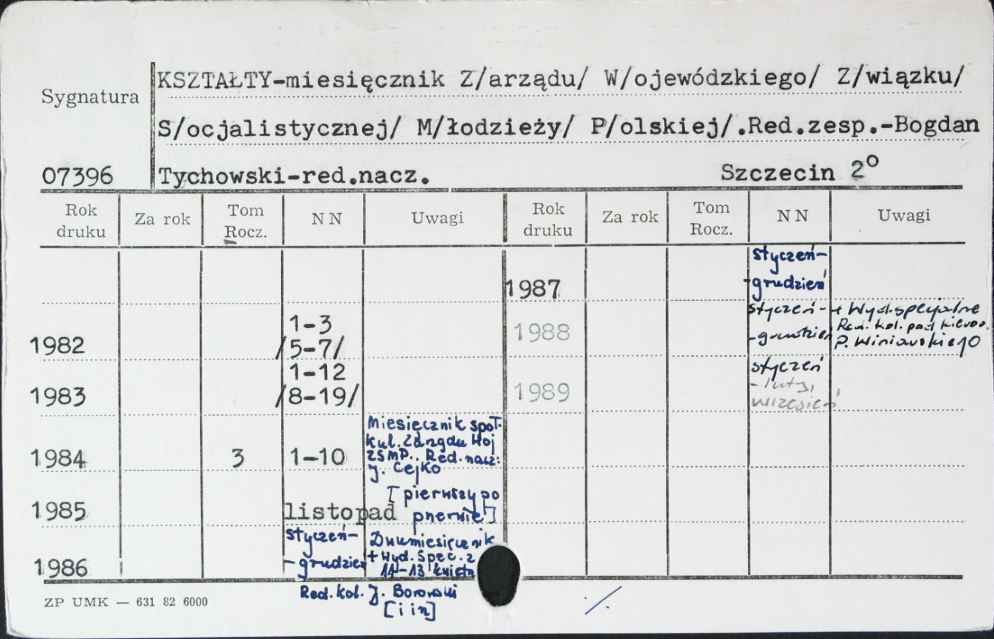 Sygnatura
07396
KSZTAŁTY-miesięcznik Z/arządu/ W/ojewódzkiego/ Z/wiązku/
S/ocjalistycznej/ M/łodzieży/ P/olskiej/.Red.zesp.-Bogdan
Tychowski-red.nacz. Szczecin 2°
Rok druku Za rok Tom Rocz. NN Uwagi Rok druku Za rok Tom Rocz. NN Uwagi
1982 1-3
/5-7/
1983 1-12
/8-19/
1984 3 1-10 Miesięcznik społ.
kul. Zarządu Woj
ZSMP. Red. nacz:
J. Cejko
1985 listopad [pierwszy po
przerwie]
1986 styczeń-
-grudzień Dwumiesięcznik
+ Wyd. Spec. z
11-13 kwietn
Red. kol. J. Borowski
[i in]
1987 styczeń-
-grudzień
1988 styczeń-
-grudzień + Wyd. specjalne
Red. kol. pod kierow.
P. Winiawskiego
1989 styczeń
- luty,
wrzesień
ZP UMK — 631 82 6000